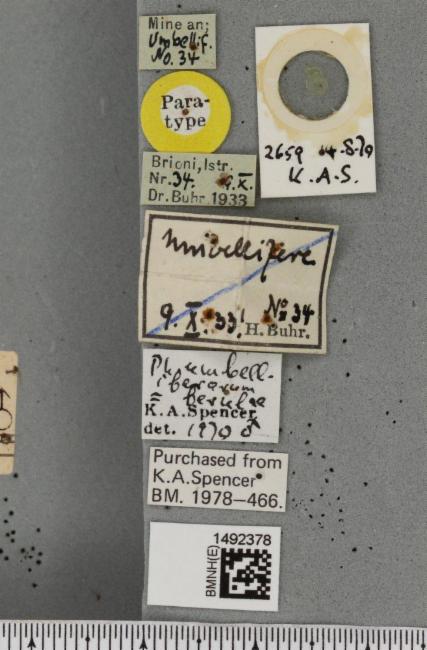 Mine an;
Umbellif.
No. 34
Para-
type
2659
K.A.S.
Brioni, Istr.
Nr. 34. 9.X.
Dr. Buhr. 1933
Umbellifere
9. X. 33! No 34
H. Buhr.
Ph. umbell-
iferarum
= ferulae
K.A.Spencer
det. 1970 ♂
Purchased from
K.A.Spencer
BM. 1978–466.
1492378
BMNH(E)